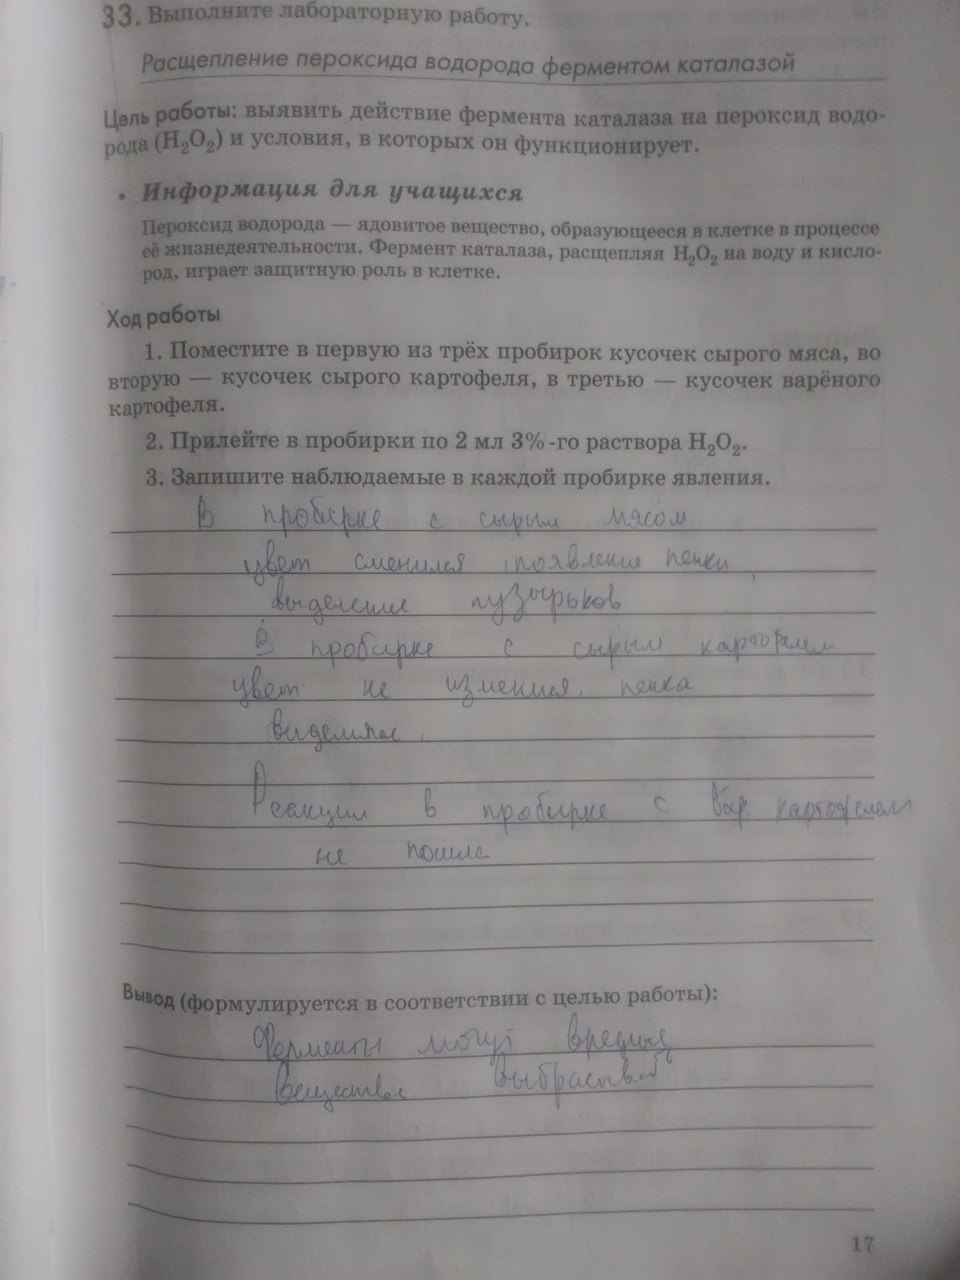 33. Выполните лабораторную работу.
Расщепление пероксида водорода ферментом каталазой
Цель работы: выявить действие фермента каталаза на пероксид водо-
рода (H₂O₂) и условия, в которых он функционирует.
• Информация для учащихся
Пероксид водорода — ядовитое вещество, образующееся в клетке в процессе
её жизнедеятельности. Фермент каталаза, расщепляя H₂O₂ на воду и кисло-
род, играет защитную роль в клетке.
Ход работы
1. Поместите в первую из трёх пробирок кусочек сырого мяса, во
вторую — кусочек сырого картофеля, в третью — кусочек варёного
картофеля.
2. Прилейте в пробирки по 2 мл 3%-го раствора H₂O₂.
3. Запишите наблюдаемые в каждой пробирке явления.
В пробирке с сырым мясом
цвет сменился, появление пенки,
выделение пузырьков
В пробирке с сырым картофелем
цвет не изменился, пенка
выделилас.
Реакция в пробирке с вар. картофелем
не пошла
Вывод (формулируется в соответствии с целью работы):
Ферменты могут вредныя
вещества выбрасыват
17